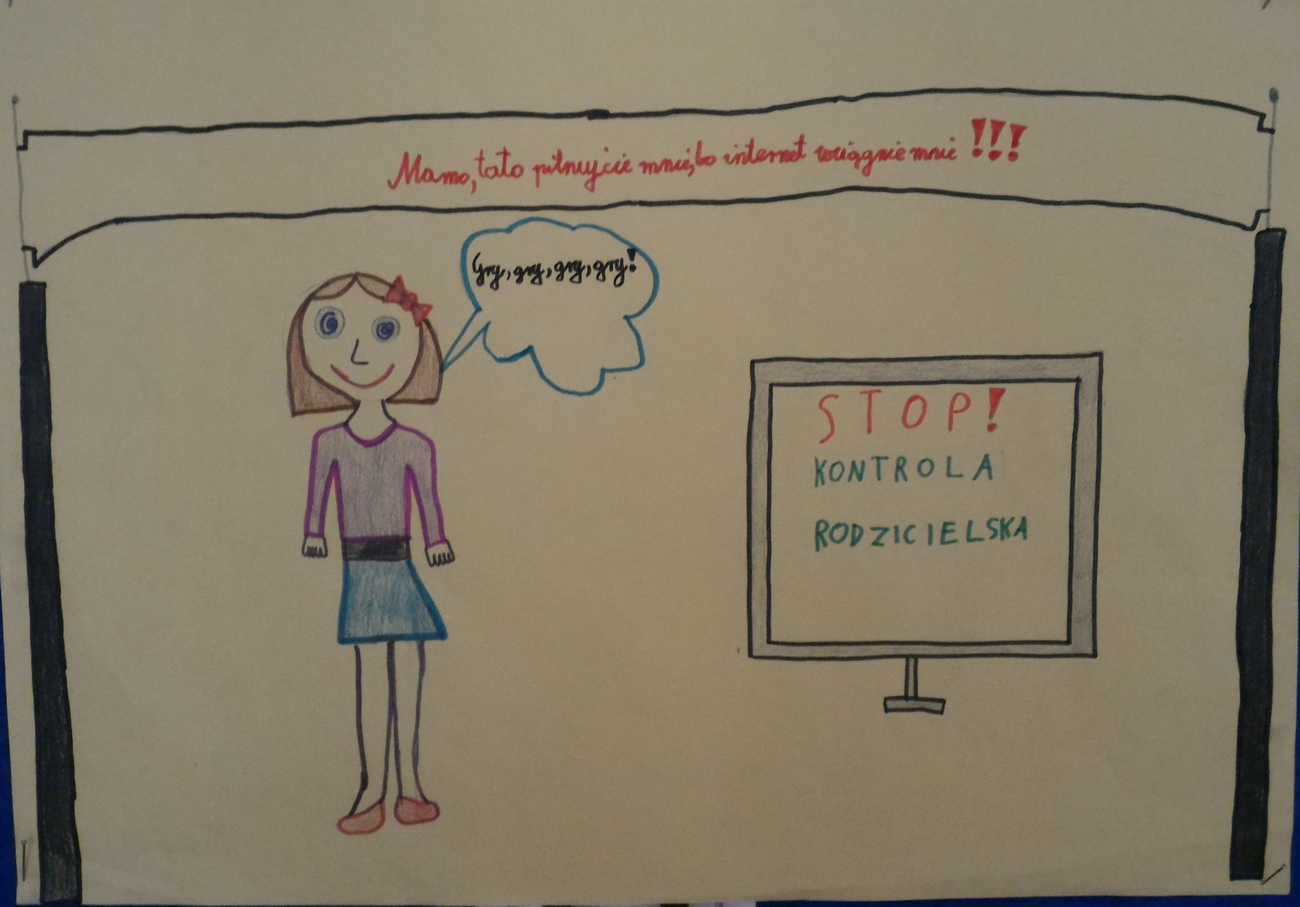 Mamo, tato pilnujcie mnie, bo internet wciągnie mnie !!!
Gry, gry, gry, gry!
STOP!
KONTROLA
RODZICIELSKA